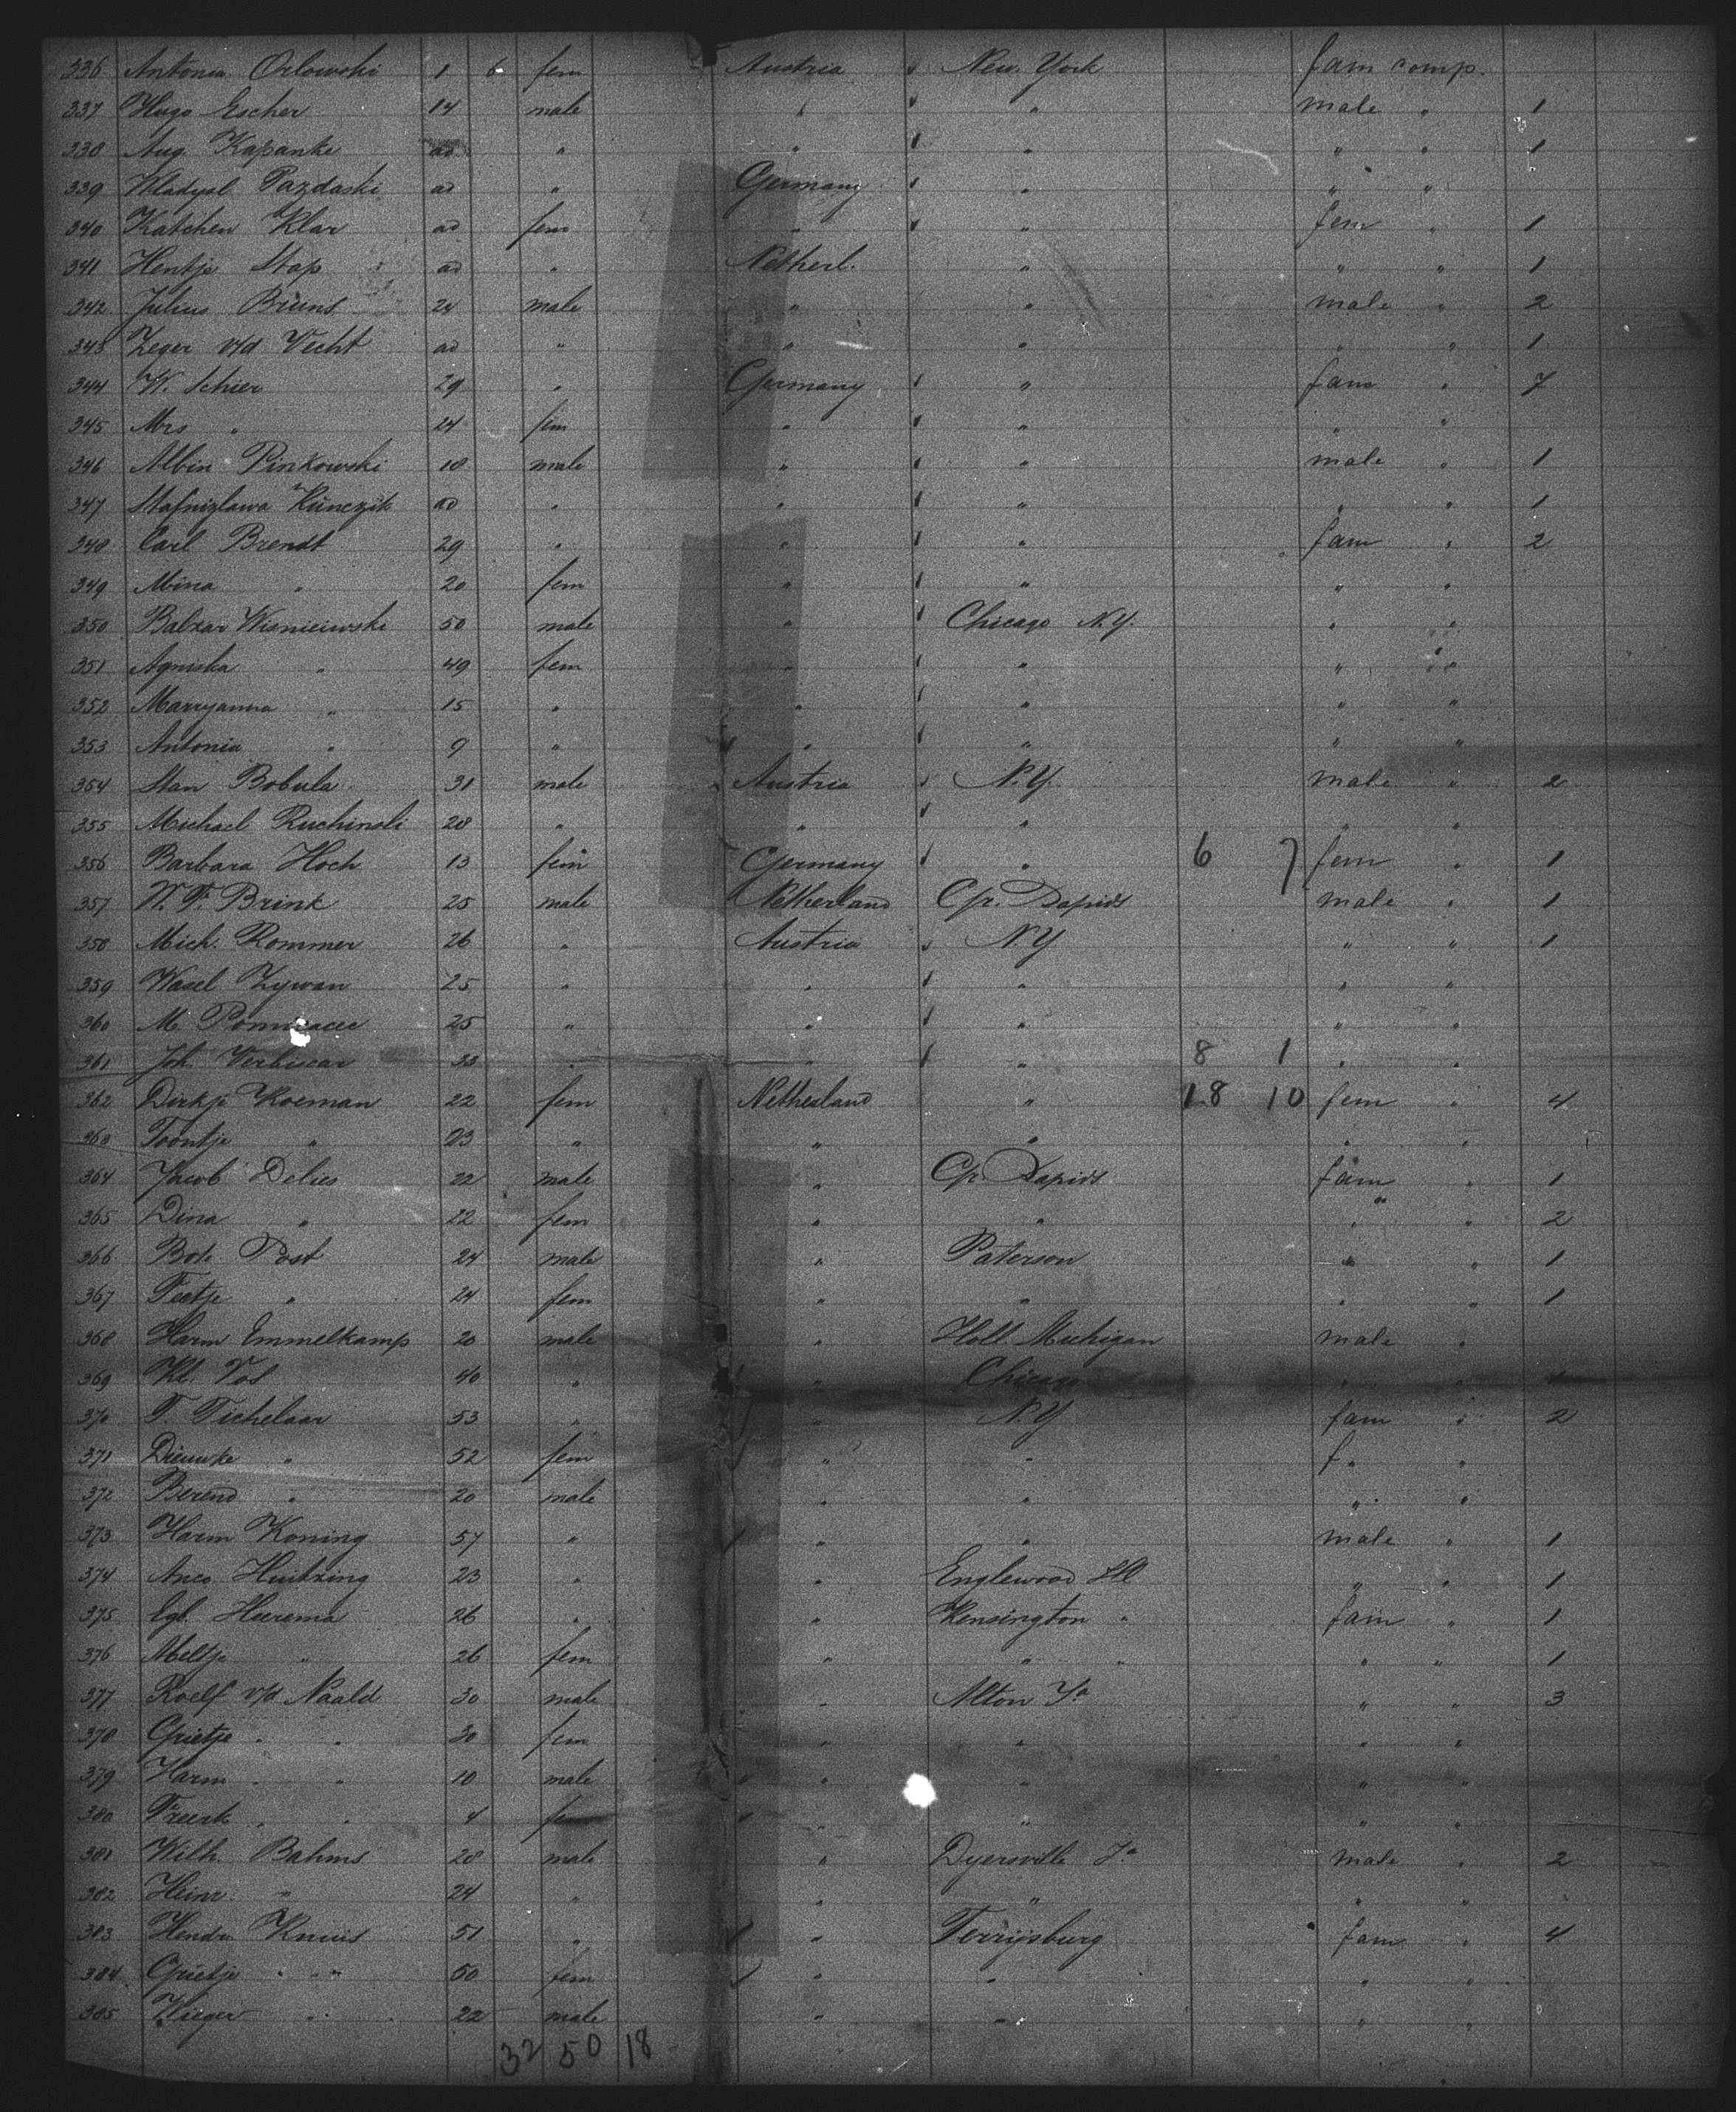 336 Antonia Orlowski 1 6 fem Austria New York fam comp.
337 Hugo Escher 14 male " " male " 1
338 Aug. Kapanke ad " " " " " 1
339 Wladysl Pazdaski ad " Germany " " "
340 Katchen Klar ad fem " " fem " 1
341 Hentje Stap ad " Netherl. " " " 1
342 Julius Bruns 24 male " " male " 2
343 Zeger v/d Vecht ad " " " " " 1
344 W. Schier 29 " Germany " fam " 7
345 Mrs " 24 fem " " " "
346 Albin Pinkowski 18 male " " male " 1
347 Kunczik ad " " " " " 1
348 Carl Brendt 29 " " " fam " 2
349 Mina " 20 fem " " " "
350 Balzar Wisniewske 50 male " Chicago N.Y. " "
351 Agniska " 49 fem " " " "
352 Marryanna " 15 " " " " "
353 Antonia " 9 " " " " "
354 Stan Bobula 31 male Austria N.Y. male " 2
355 Michael Ruchinski 28 " " " " "
356 Barbara Hoch 13 fem Germany " 6 7 fem " 1
357 W. F. Brink 25 male Netherland Gr. Rapids male " 1
358 Mich. Rommer 26 " Austria N.Y " " 1
359 Wasel Zywan 25 " " " " "
360 M. 25 " " " " "
361 Joh. Verbiscar 33 " " " 8 1 " "
362 Dirkje Koeman 22 fem Netherland " 18 10 fem " 4
363 Toontje " 23 " " " " "
364 Jacob Delies 22 male " Gr Rapids fam " 1
365 Dina " 22 fem " " " " 2
366 Bote Post 24 male " Paterson " " 1
367 Tietje " 24 fem " " " " 1
368 Harm Emmelkamp 20 male " Holl Michigan male "
369 Kl. Vos 40 " " Chicago " " 1
370 T. Tichelaar 53 " " N.Y fam " 2
371 Dieuwke " 52 fem " " f " "
372 Berend " 20 male " " " "
373 Harm Koning 57 " " " male " 1
374 Anco Huitzing 23 " " Englewood Ill " " 1
375 Egb. Heerema 26 " " Kensington " fam " 1
376 Meltje " 26 fem " " " " " 1
377 Roelf v/d Naald 30 male " Alton Ia " " 3
378 Grietje " " 30 fem " " " "
379 Harm " " 10 male " " " "
380 Freerk " " 4 fem " " " "
381 Wilh. Bahms 28 male " Dyersville Ia male " 2
382 Heinr. " 24 " " " " "
383 Hendr Knuis 51 " " Ferrysburg fam " 4
384 Grietje " " 50 fem " " " "
385 Wieger " 22 male " " " "
32 50 18